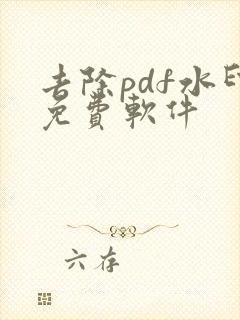 去除pdf水印
免費軟件
六存